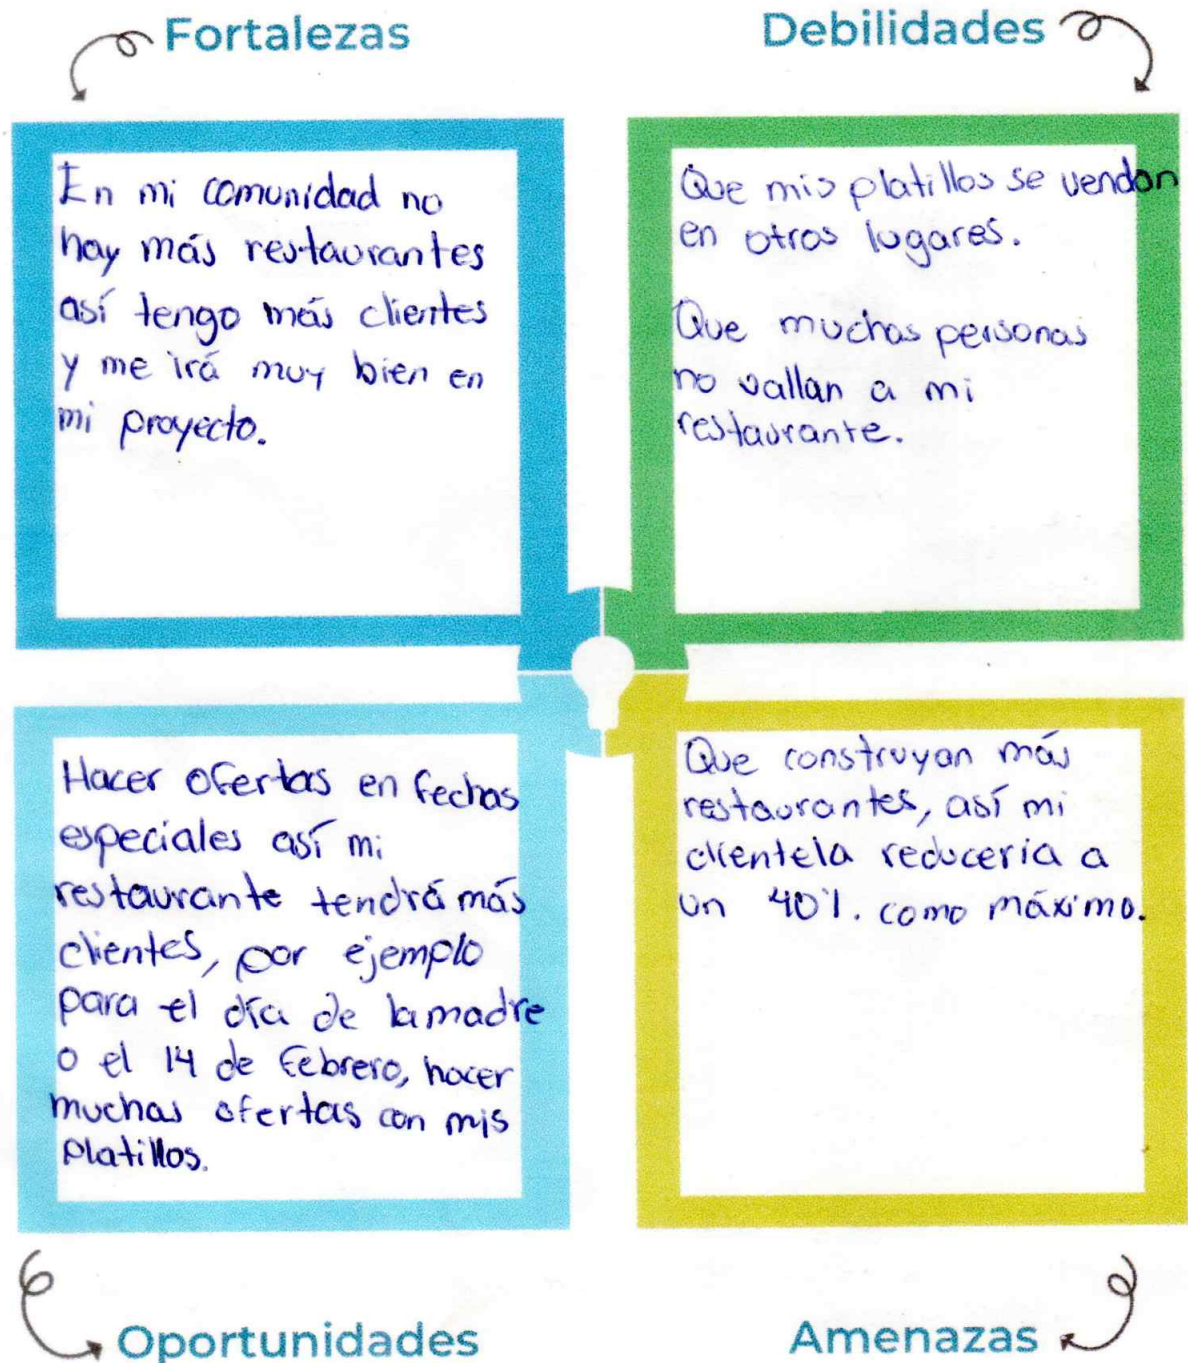 Fortalezas
En mi comunidad no
hay más restaurantes
así tengo más clientes
y me irá muy bien en
mi proyecto.
Debilidades
Que mis platillos se vendan
en otros lugares.
Que muchas personas
no vallan a mi
restaurante.
Hacer ofertas en fechas
especiales así mi
restaurante tendrá más
clientes, por ejemplo
para el día de la madre
o el 14 de febrero, hacer
muchas ofertas con mis
platillos.
Oportunidades
Que construyan más
restaurantes, así mi
clientela reduceria a
un 40%. como máximo.
Amenazas